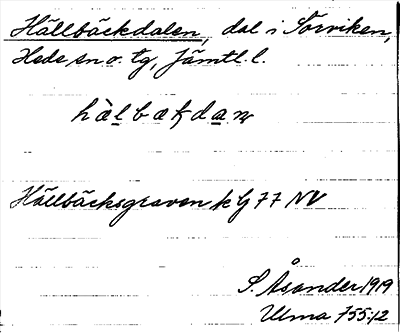 Hällbäckdalen, dal i Sörviken,
Hede sn o. tg, Jämtl. l.
hàlbækdan
Hällbäcksgraven k bl 77 NV
S. Åsander 1919
Ulma 755:12